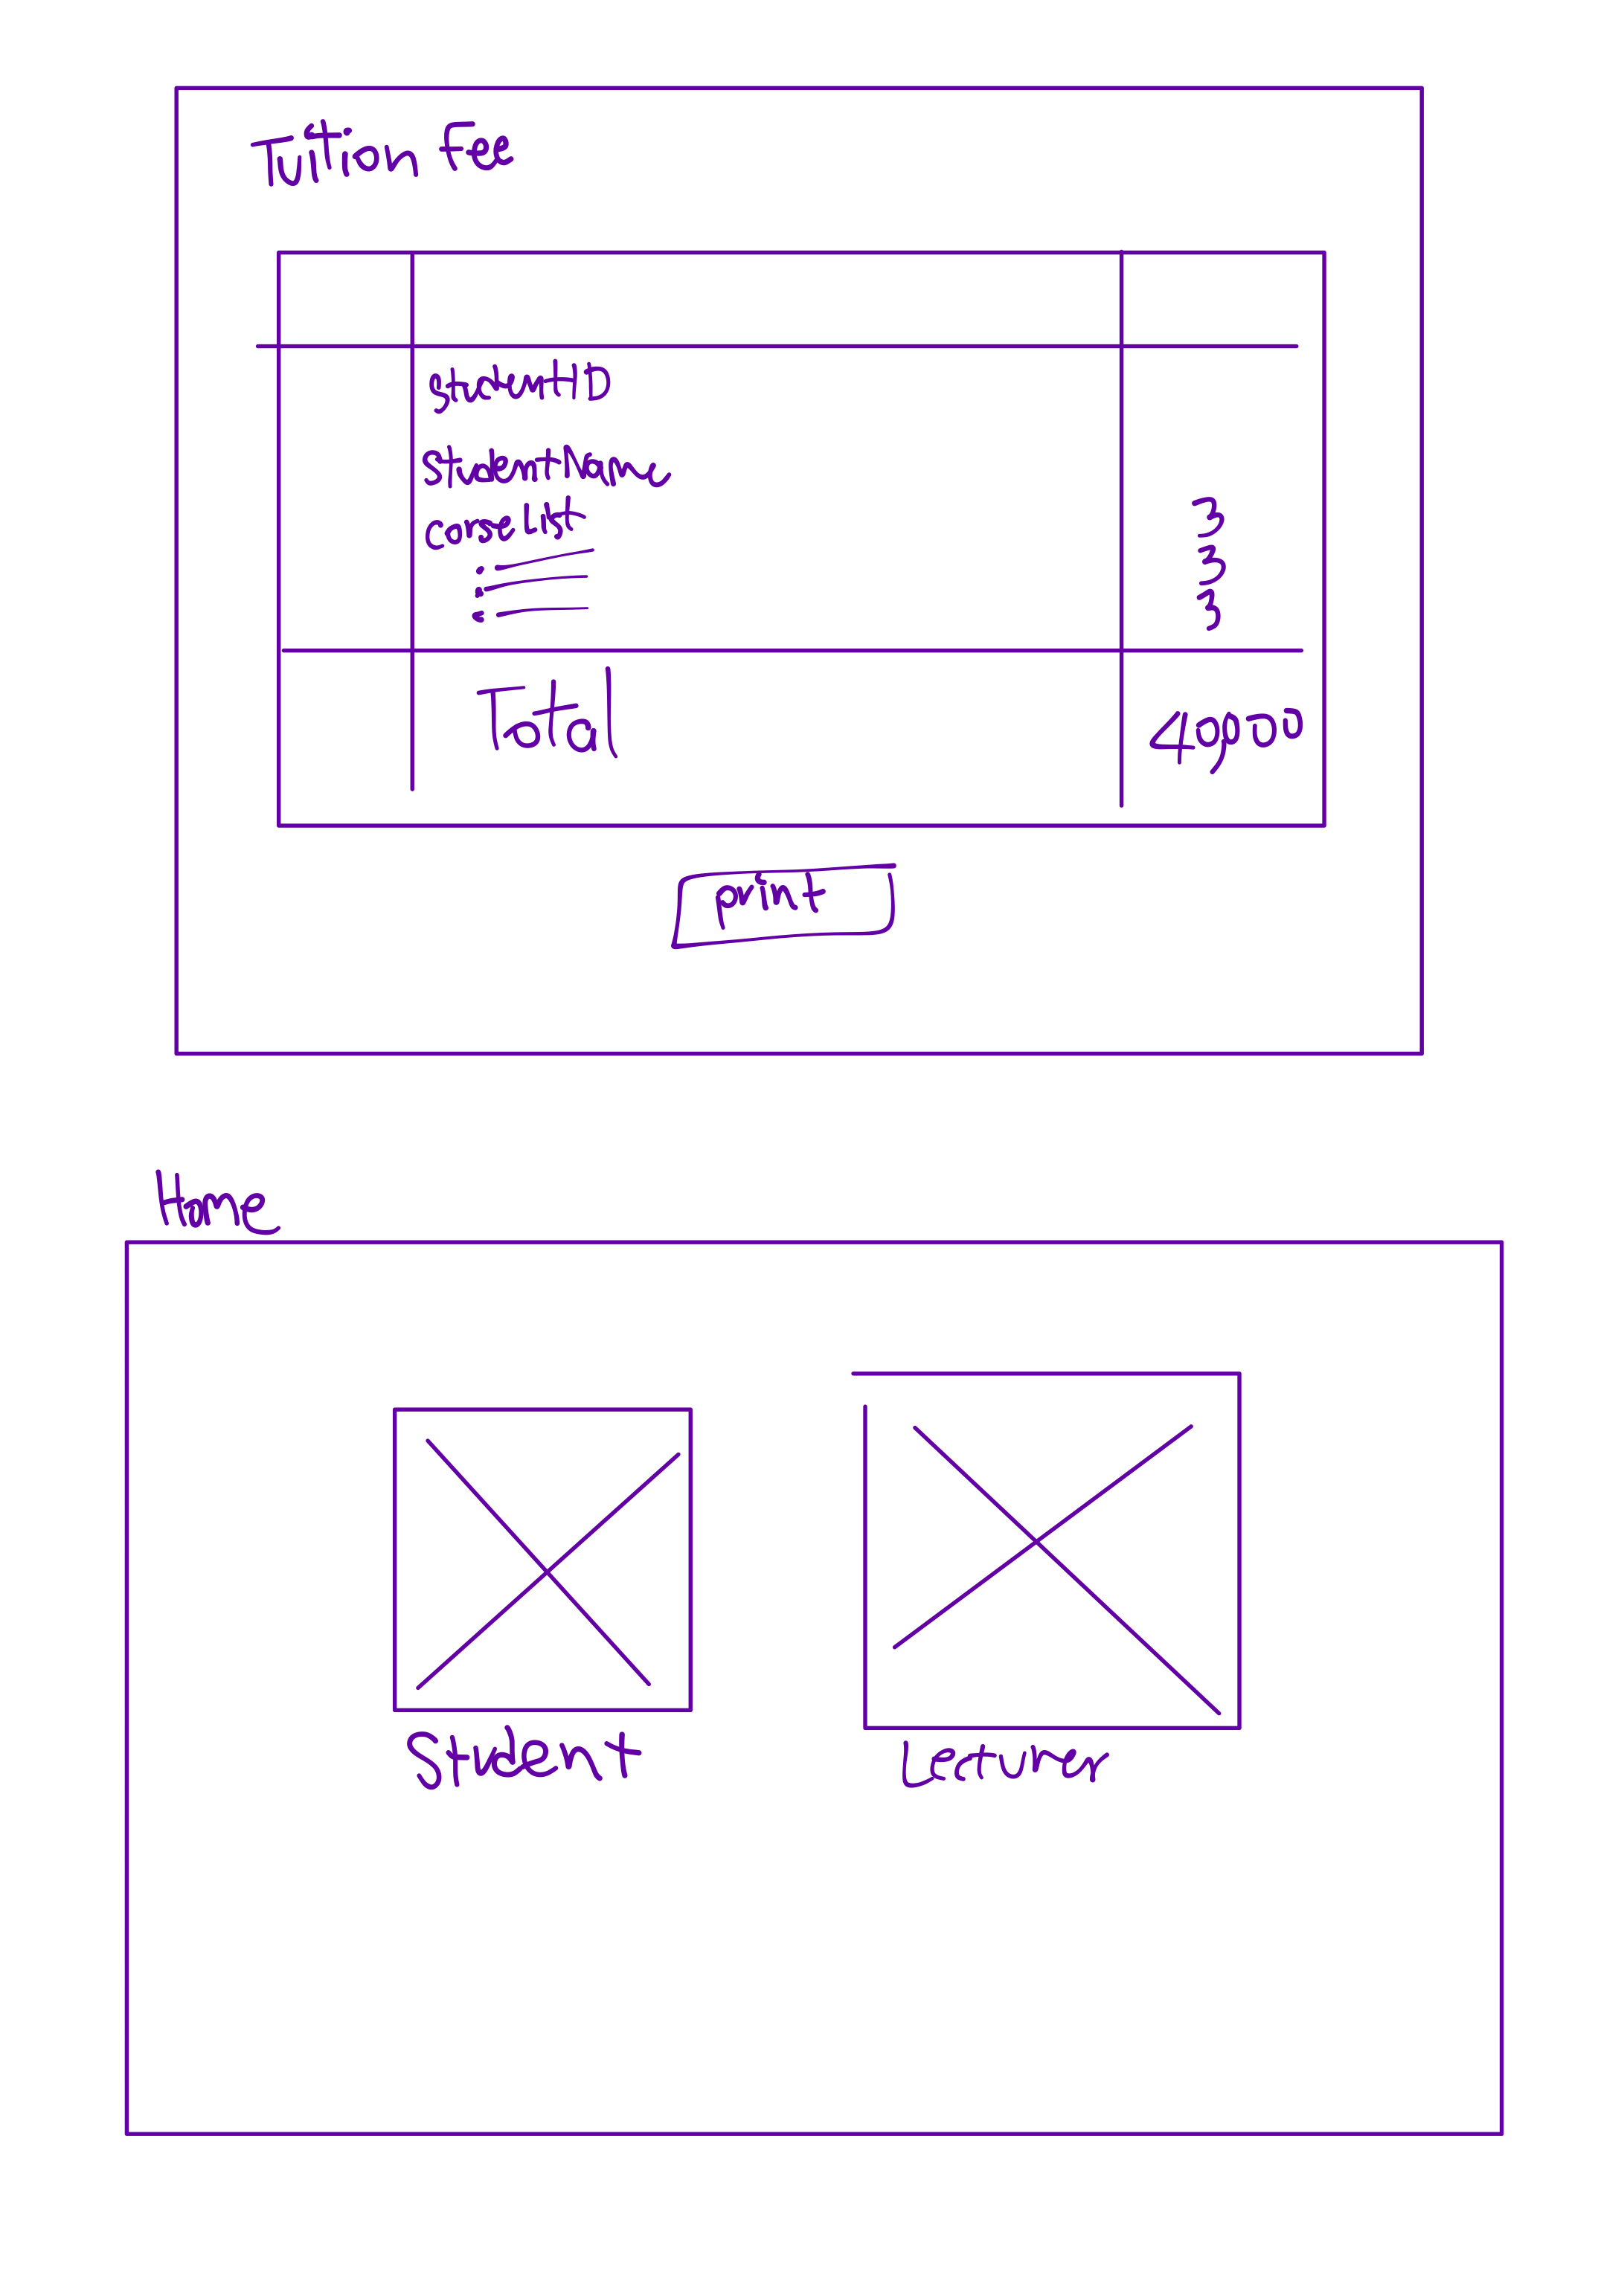 Tuition Fee
studentID
StudentName
corse list
3
3
3
Total
40,000
print
Home
Student
Lecturer